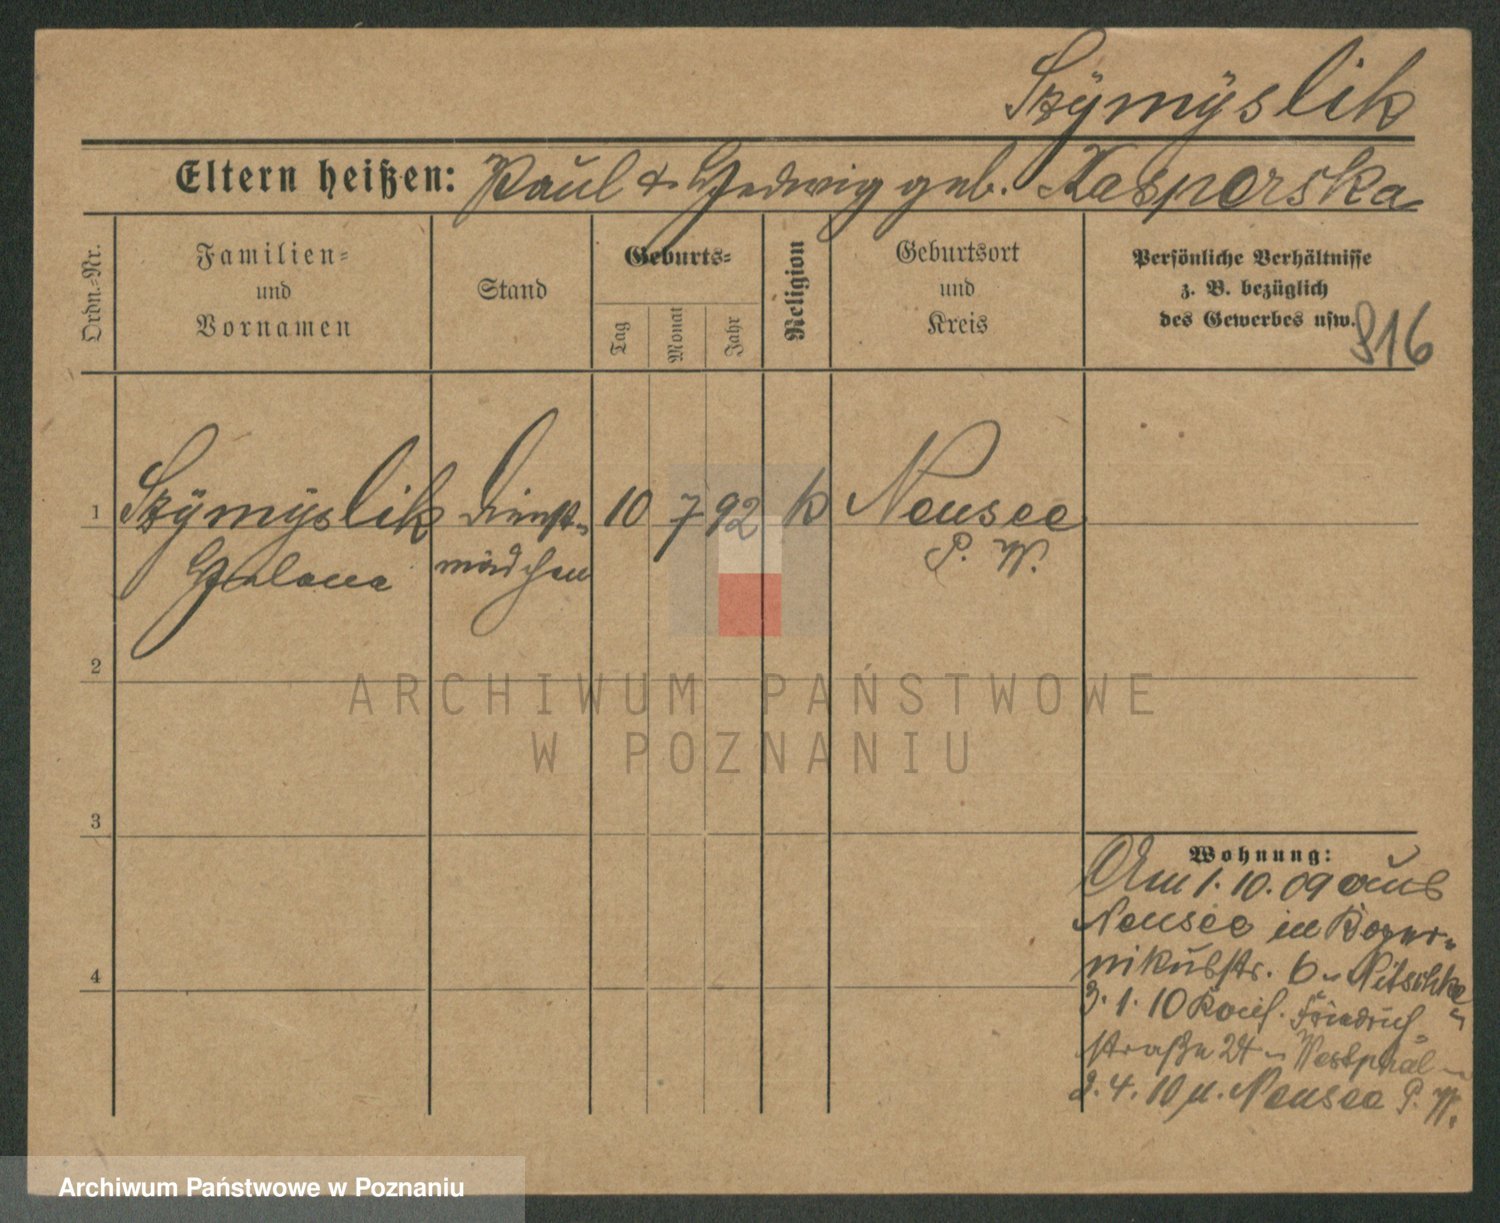 Szÿmÿslik
Eltern heißen: Paul & Hedwig geb. Kasporska
Ordn.-Nr.
Familien- und Vornamen
Stand
Geburts-
Tag
Monat
Jahr
Religion
Geburtsort und Kreis
Persönliche Verhältnisse
z. B. bezüglich
des Gewerbes usw.
816
1 Szÿmÿslik Dienst- 10 7 92 k Neusee
Helena mädchen P. W.
2
3
4
Wohnung:
Am 1. 10. 09 aus
Neusee in Koper-
nikusstr. 6 - Nitschke -
3. 1. 10 Friedrich-
straße 24 - Westphal -
2. 4. 10 n. Neusee P. W.
ARCHIWUM PAŃSTWOWE
W POZNANIU
Archiwum Państwowe w Poznaniu